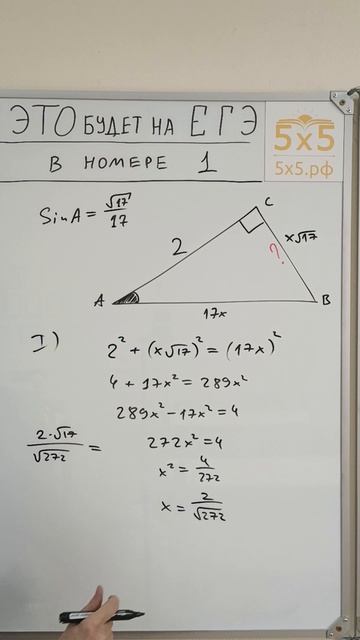 ЭТО БУДЕТ НА ЕГЭ
В НОМЕРЕ 1
5×5
5x5.рф
SinA = √17/17
C
2
x√17
?
A
B
17x
I)
2² + (x√17)² = (17x)²
4 + 17x² = 289x²
289x² - 17x² = 4
2·√17/√272 =
272x² = 4
x² = 4/272
x = 2/√272